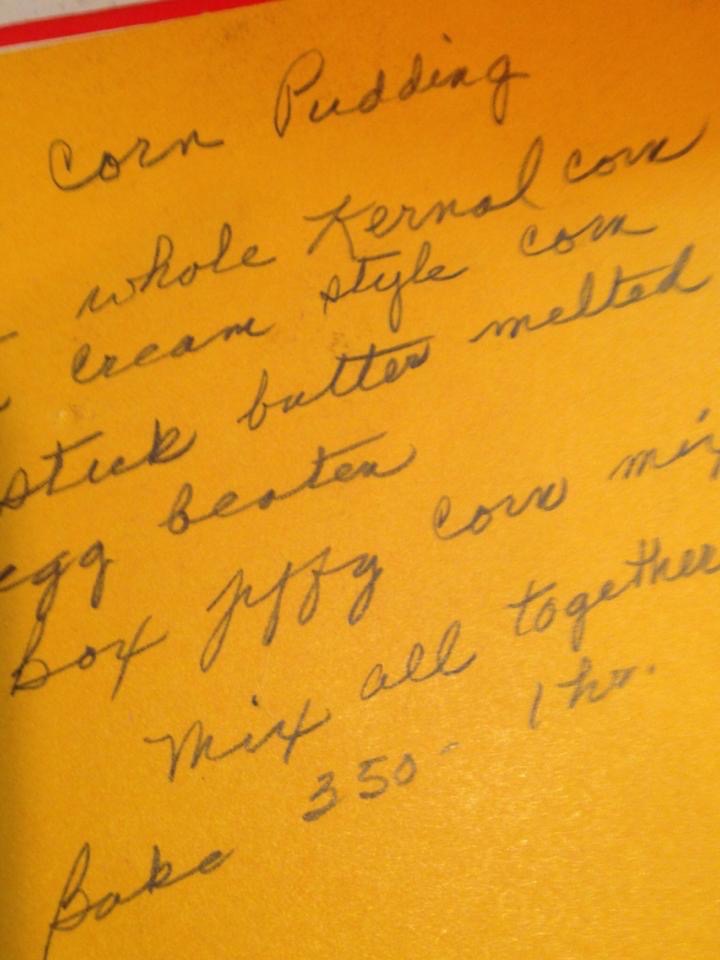 Corn Pudding
whole Kernal corn
cream style corn
stick butter melted
egg beaten
box jiffy corn mix
Mix all together
Bake 350- 1 hr.